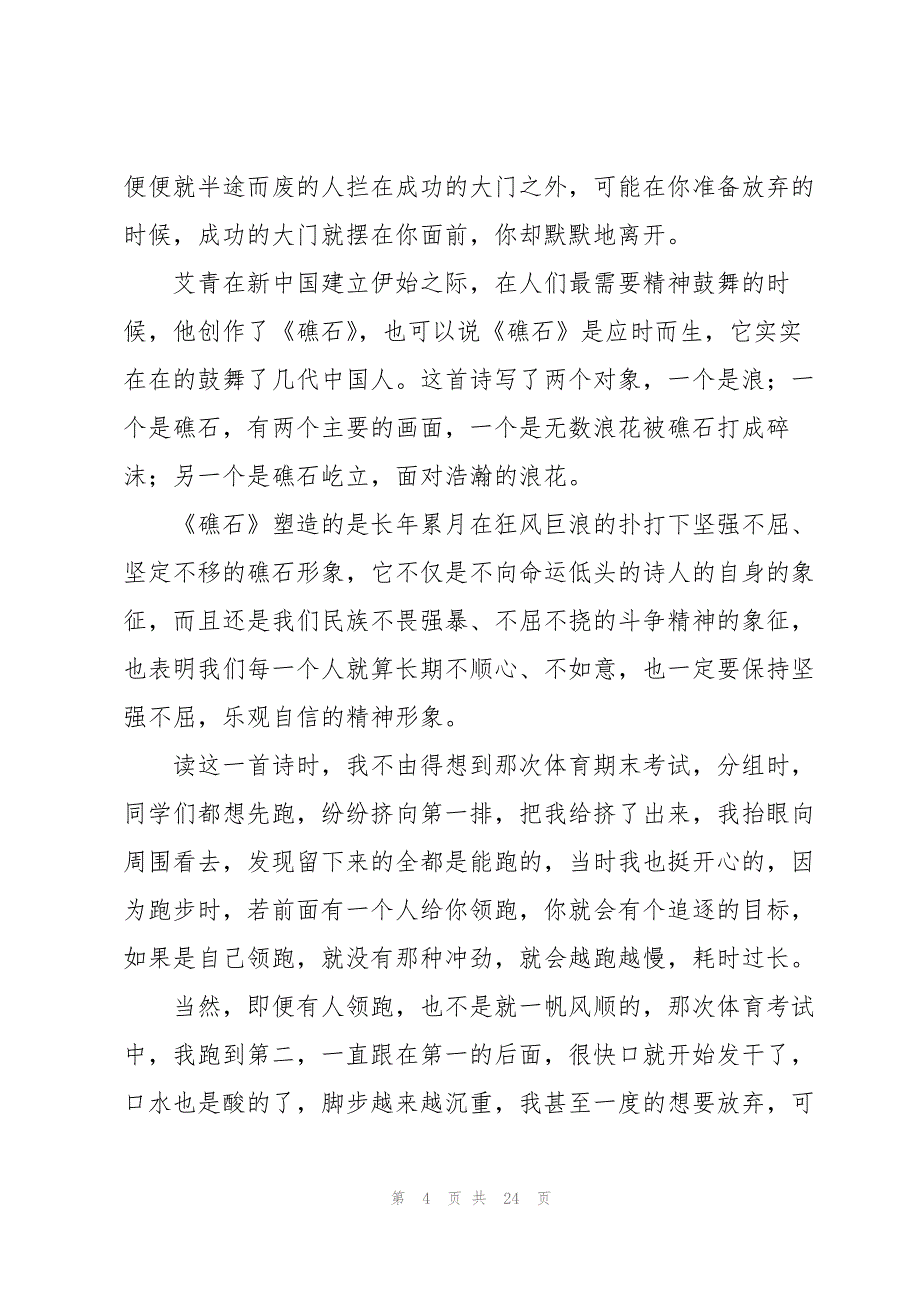 便便就半途而废的人拦在成功的大门之外，可能在你准备放弃的
时候，成功的大门就摆在你面前，你却默默地离开。
艾青在新中国建立伊始之际，在人们最需要精神鼓舞的时
候，他创作了《礁石》，也可以说《礁石》是应时而生，它实实
在在的鼓舞了几代中国人。这首诗写了两个对象，一个是浪；一
个是礁石，有两个主要的画面，一个是无数浪花被礁石打成碎
沫；另一个是礁石屹立，面对浩瀚的浪花。
《礁石》塑造的是长年累月在狂风巨浪的扑打下坚强不屈、
坚定不移的礁石形象，它不仅是不向命运低头的诗人的自身的象
征，而且还是我们民族不畏强暴、不屈不挠的斗争精神的象征，
也表明我们每一个人就算长期不顺心、不如意，也一定要保持坚
强不屈，乐观自信的精神形象。
读这一首诗时，我不由得想到那次体育期末考试，分组时，
同学们都想先跑，纷纷挤向第一排，把我给挤了出来，我抬眼向
周围看去，发现留下来的全都是能跑的，当时我也挺开心的，因
为跑步时，若前面有一个人给你领跑，你就会有个追逐的目标，
如果是自己领跑，就没有那种冲劲，就会越跑越慢，耗时过长。
当然，即便有人领跑，也不是就一帆风顺的，那次体育考试
中，我跑到第二，一直跟在第一的后面，很快口就开始发干了，
口水也是酸的了，脚步越来越沉重，我甚至一度的想要放弃，可
第 4 页 共 24 页